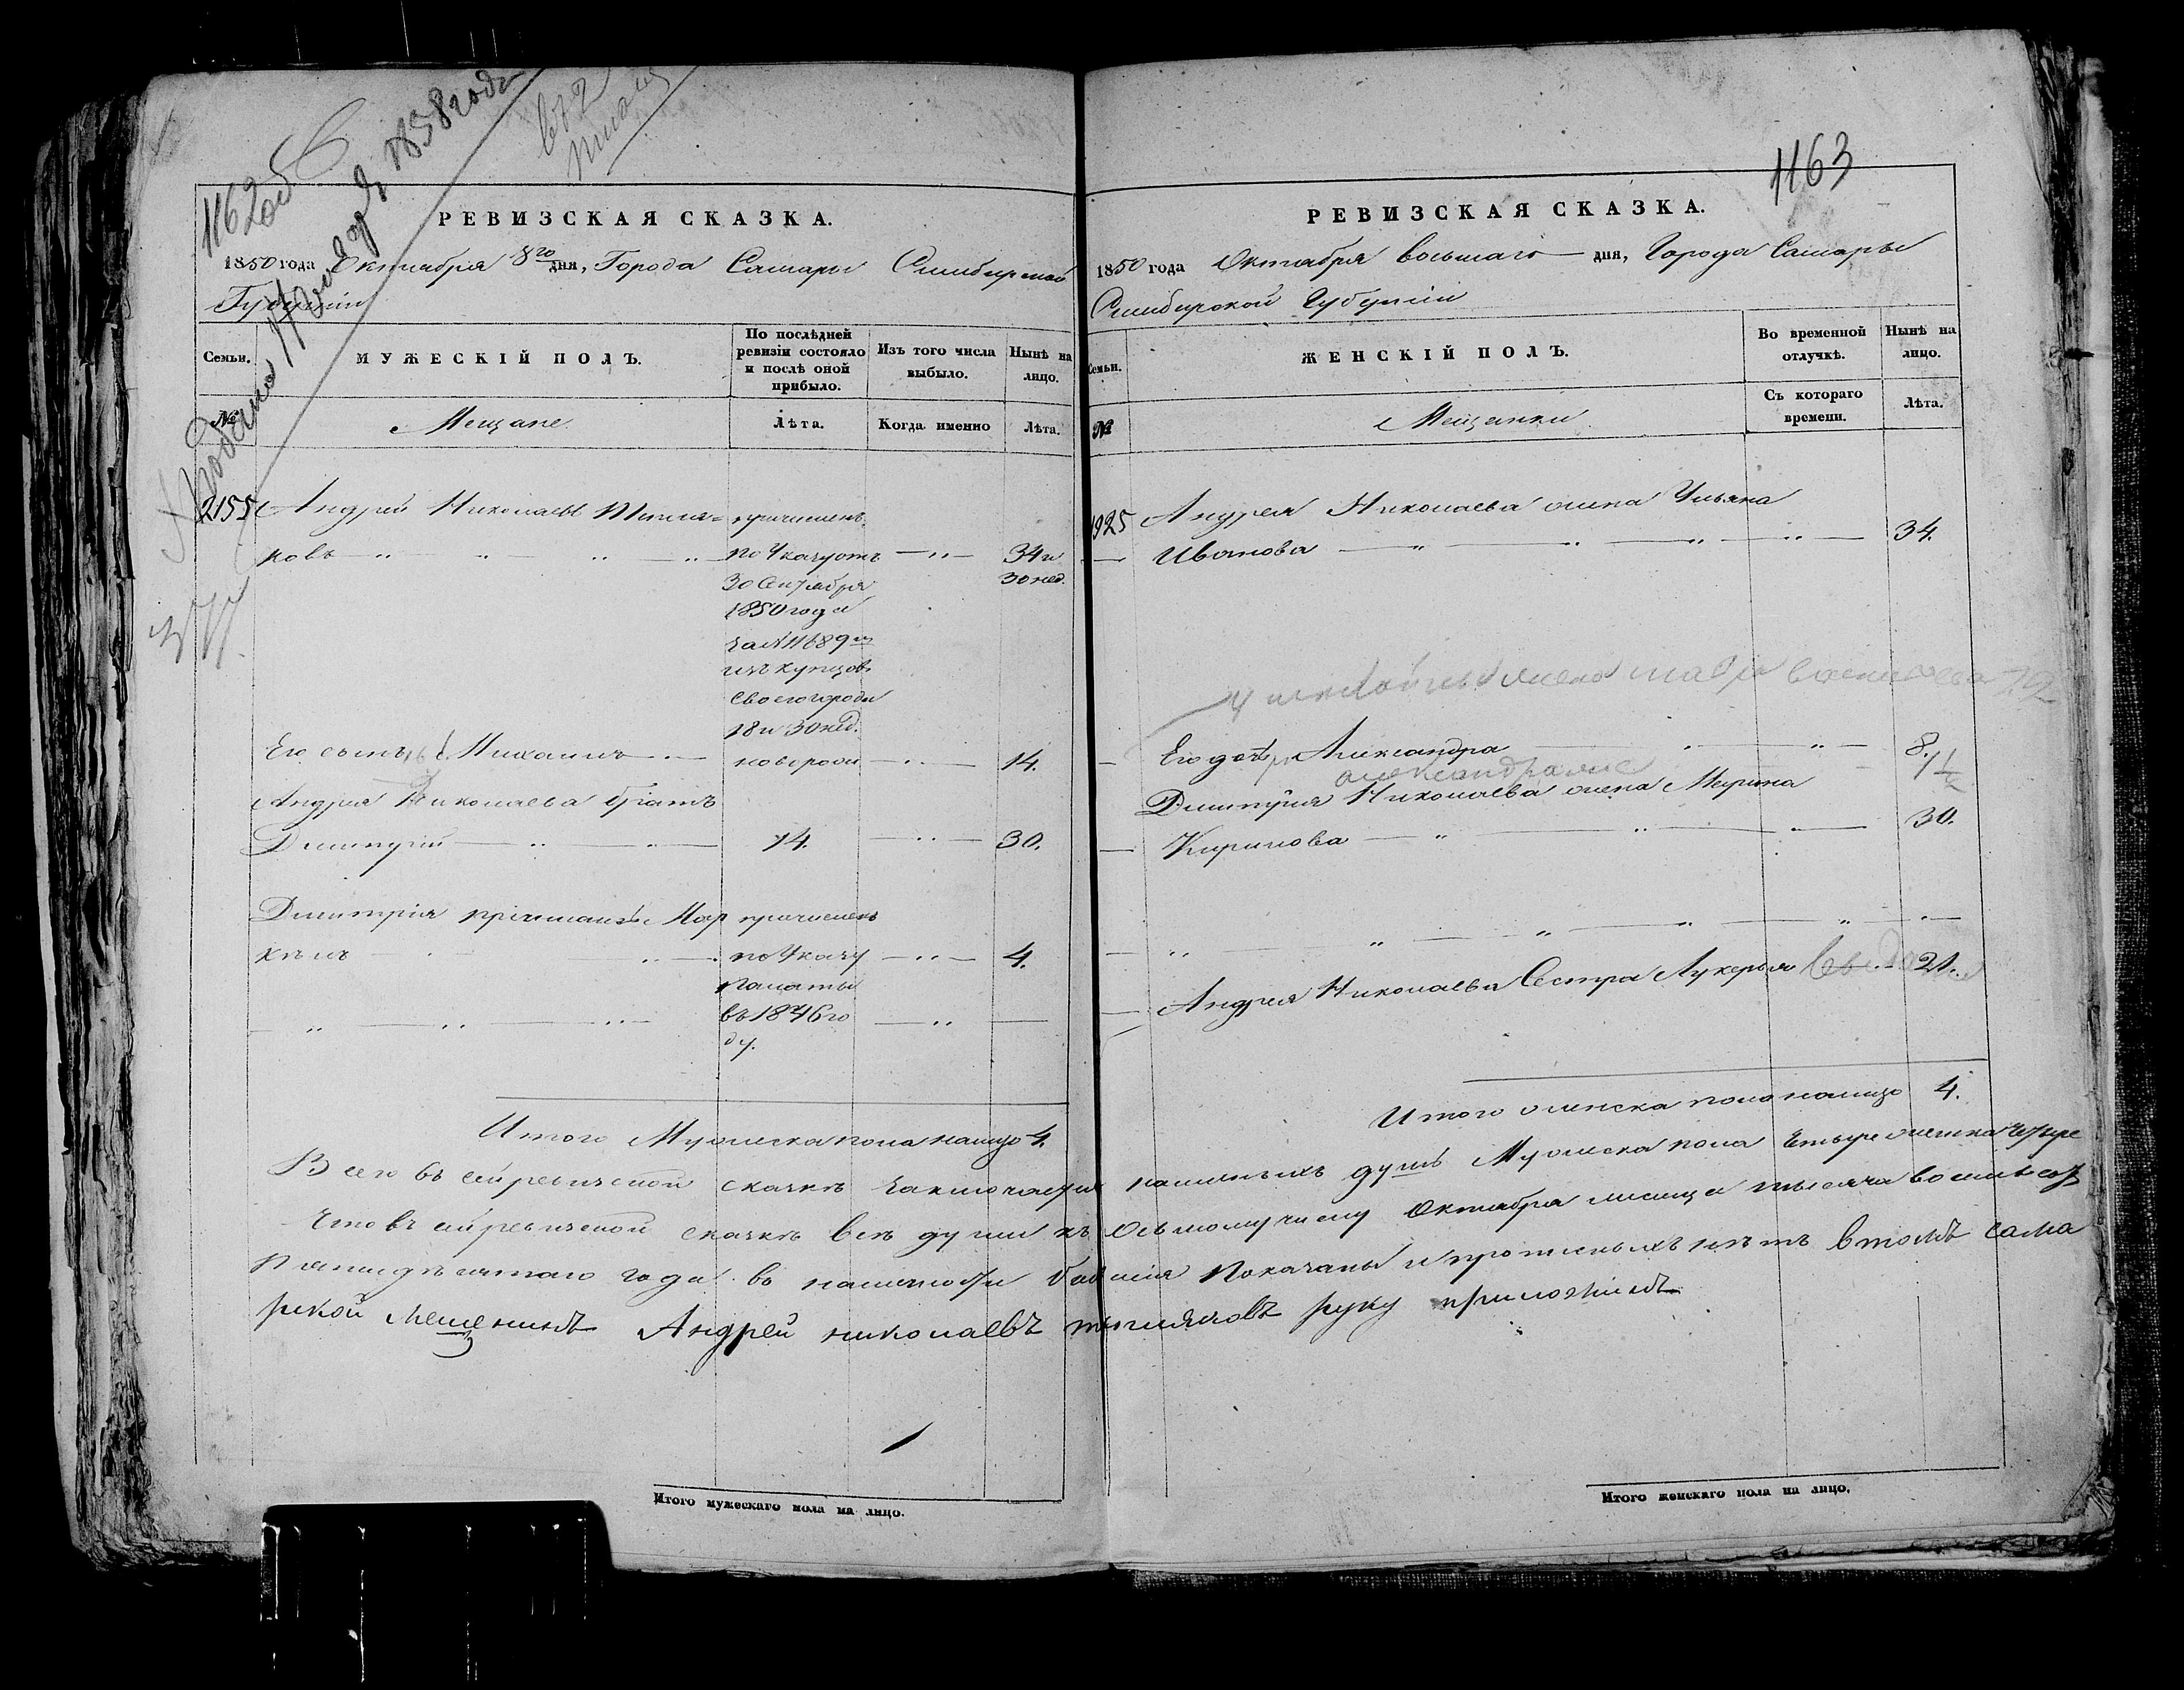 1162 об
1858 года
РЕВИЗСКАЯ СКАЗКА.
1850 года Октября 8го дня, Города Самары Симбирской
Губернии
Семьи.
МУЖЕСКІЙ ПОЛЪ.
По послѣдней
ревизіи состояло
и послѣ оной
прибыло.
Изъ того числа
выбыло.
Нынѣ на
лицо.
№
Мещане
Лѣта.
Когда именно
Лѣта.
2155 Андрей Николаевъ причисленъ
ковъ по Указу отъ 34 и
30 Сентября 30 нед.
1850 года
за № 11689м
изъ купцовъ
своего города
18 и 30 нед.
Его сынъ Михаилъ новорож 14.
Андрея Николаева братъ
Дмитрий 14. 30.
Дмитрія Мар причисленъ
по Указу 4.
Палаты
въ 1846 го
ду.
Итого Мужеска пола налицо 4.
Итого мужескаго пола на лицо.
1163
РЕВИЗСКАЯ СКАЗКА.
1850 года Октября восьмаго дня, Города Самары
Симбирской Губерніи
Семьи.
ЖЕНСКІЙ ПОЛЪ.
Во временной
отлучкѣ.
Нынѣ на
лицо.
№
Мещанки
Съ котораго
времени.
Лѣта.
1925 Андрея Николаева жена Ульяна
Иванова 34.
Его дочь Александра 8.
Дмитрія Николаева жена Марина
Кирилова 30.
Андрея Николаева Сестра Лукерья 21.
Итого женска пола налицо 4.
Всего въ сей ревизской сказкѣ заключается наличныхъ душъ Мужеска пола четыре женска четыре
Что въ сей ревизской сказкѣ всѣ души къ осьмому числу Октября месяца тысяча восемьсотъ
пятидесятаго года въ наличности бывшія показаны и прописныхъ нѣтъ въ томъ сама
рской мещенинъ Андрей николаевъ руку приложилъ
Итого женскаго пола на лицо.